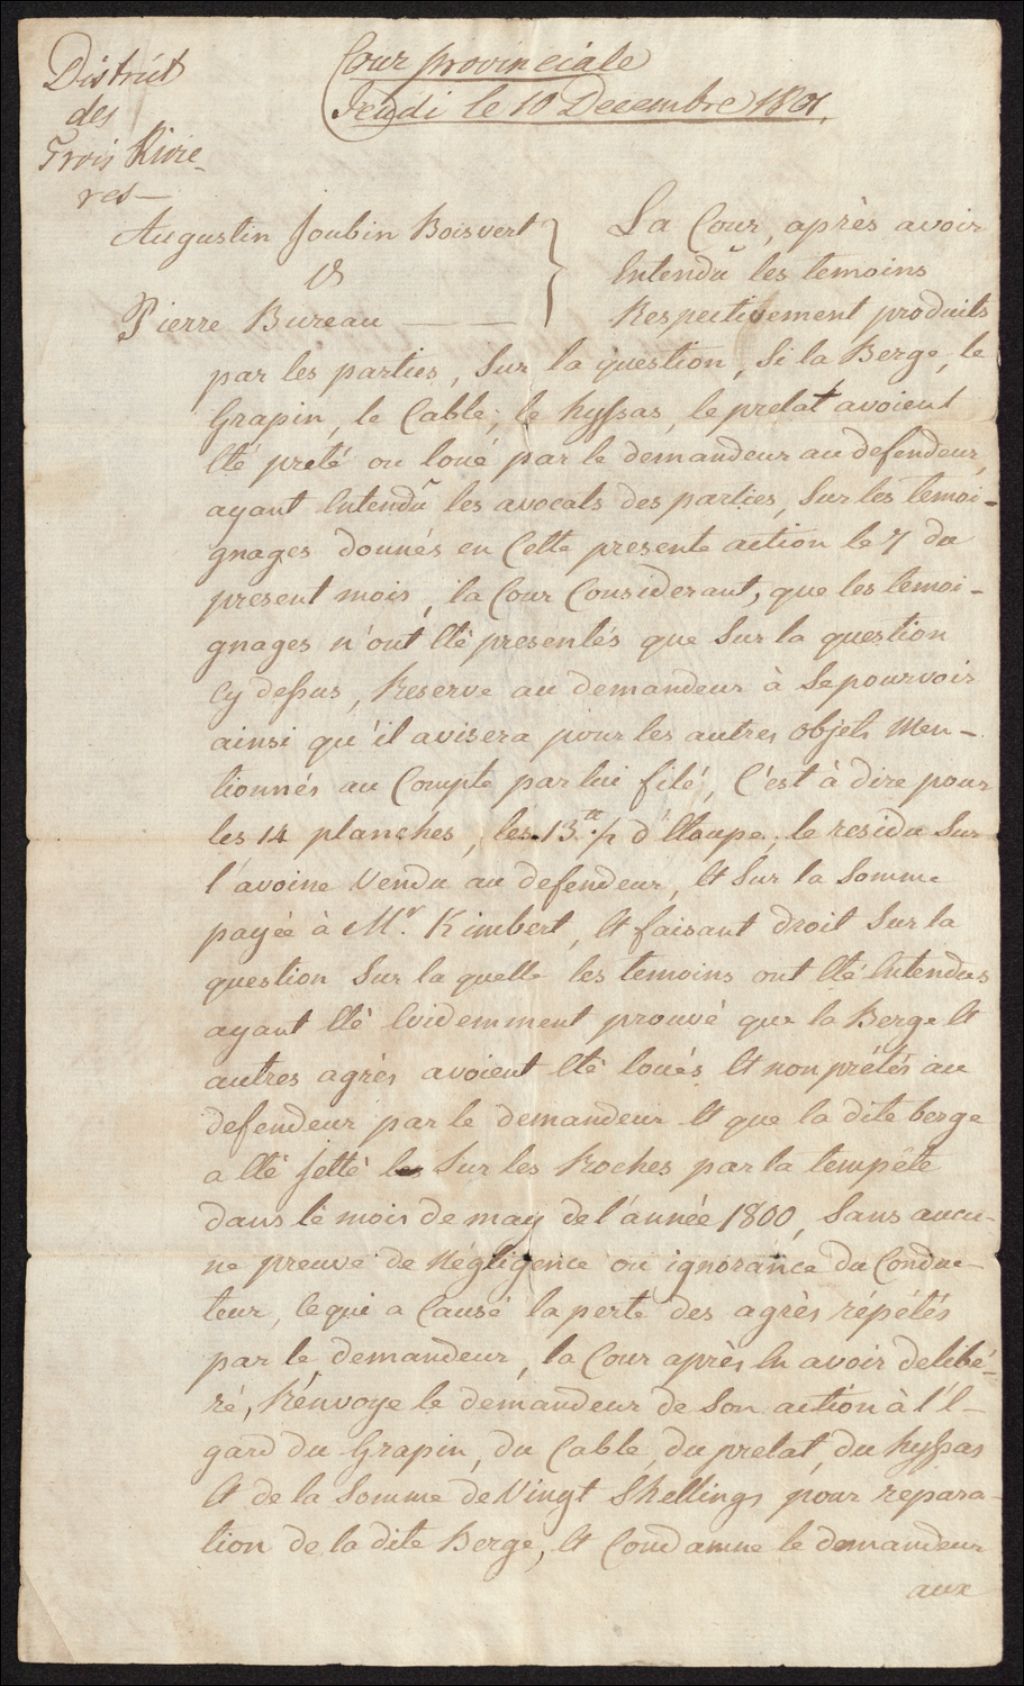 District
des
Trois Rivie-
res-
Cour provinciale
Jeudi le 10 Decembre 1801.
Augustin Joubin Boisvert
vs
Pierre Bureau
La Cour, après avoir
Entendu les temoins
Respectivement produits
par les parties, Sur la question, Si la Berge, le
Grapin, le Cable, le hyssas, le prelat avoient
Eté preté ou loué par le demandeur au defendeur,
ayant Entendu les avocats des parties, Sur les temoi-
gnages donnés en Cette presente action le 7 du
present mois, la Cour Considerant, que les temoi-
gnages n'ont Eté presentés que Sur la question
Cy dessus, Reserve au demandeur à Se pourvoir
ainsi qu'il avisera pour les autres objets Men-
tionnés au Compte par lui filé, C'est à dire pour
les 14 planches, les 13 d'Etoupe, le residu Sur
l'avoine Vendu au defendeur, Et Sur la Somme
payée à Mr. Kimbert, Et faisant droit Sur la
question Sur la quelle les temoins ont Eté Entendus
ayant Eté Evidemment prouvé que la Berge Et
autres agrès avoient Eté loués Et non prétés au
defendeur par le demandeur Et que la dite berge
a Eté Jetté Sur les Roches par la tempête
dans le mois de may de l'année 1800, Sans aucu-
ne preuve de Négligence ou ignorance du Conduc-
teur, Ce qui a Causé la perte des agrès répétés
par le demandeur, la Cour après En avoir delibé-
ré, Rénvoye le demandeur de Son action à l'E-
gard du Grapin, du Cable, du prelat, du hyssas
Et de la Somme de Vingt Shellings pour repara-
tion de la dite Berge, Et Condamne le demandeur
aux